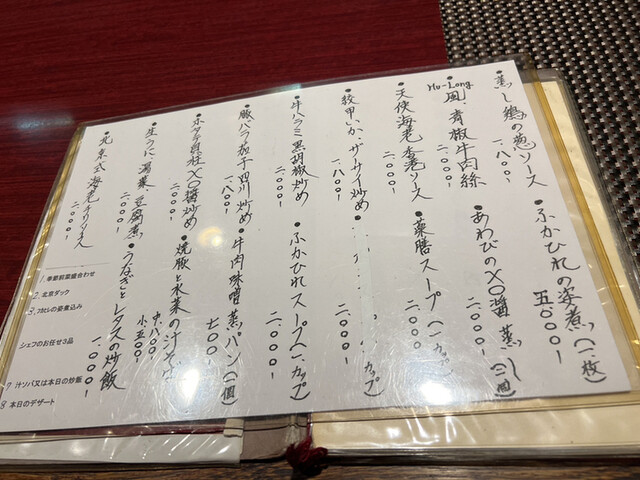 ●蒸し鶏の葱ソース
一、八〇〇-
●Hu-Long風、青椒牛肉絲
二、〇〇〇-
●天使海老、香港ソース
二、〇〇〇-
●紋甲いか、ザーサイ炒め
一、八〇〇-
●牛ハラミ黒胡椒炒め
二、〇〇〇-
●豚バラ茄子四川炒め
一、八〇〇-
●ホタテ貝柱XO醤炒め
二、〇〇〇-
●生うに、湯葉、豆腐煮
二、〇〇〇-
●北京式海老チリソース
二、〇〇〇-
●ふかひれの姿煮(一枚)
五、〇〇〇-
●あわびのXO醤蒸し(一個)
二、〇〇〇-
●薬膳スープ(一カップ)
二、〇〇〇-
カップ)
二、〇〇〇-
●ふかひれスープ(一カップ)
二、〇〇〇-
●牛肉味噌蒸しパン(一個)
七〇〇-
●焼豚と水菜の汁そば
中、八〇〇-
小、五〇〇-
●うなぎとレタスの炒飯
一、〇〇〇-
1. 季節前菜盛合わせ
2. 北京ダック
3. フカヒレの姿煮込み
シェフのお任せ3品
7 汁ソバ又は本日の炒飯
8 本日のデザート